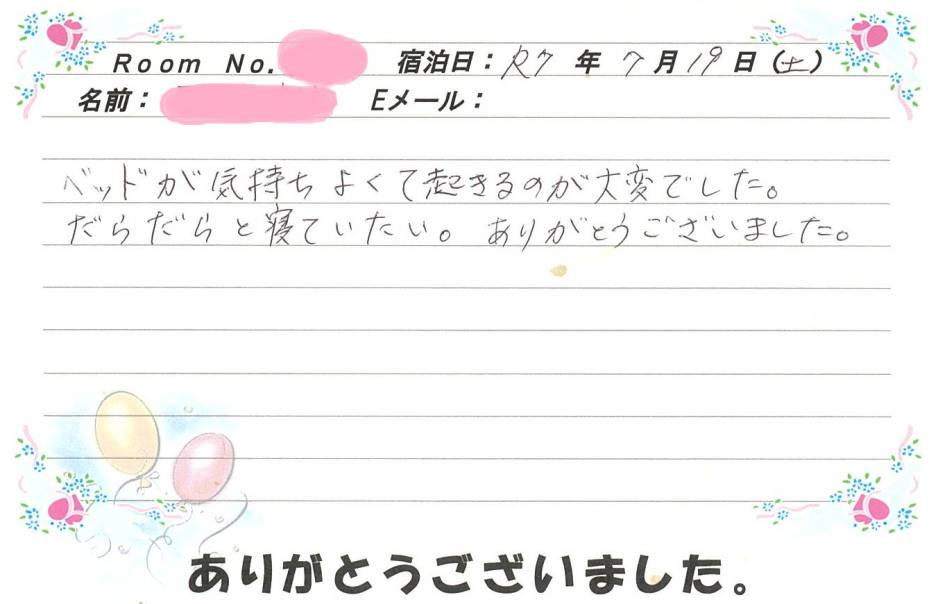 Room No. 宿泊日：R7 年 7 月 19 日（土）
名前： Eメール：
ベッドが気持ちよくて起きるのが大変でした。
だらだらと寝ていたい。ありがとうございました。
ありがとうございました。